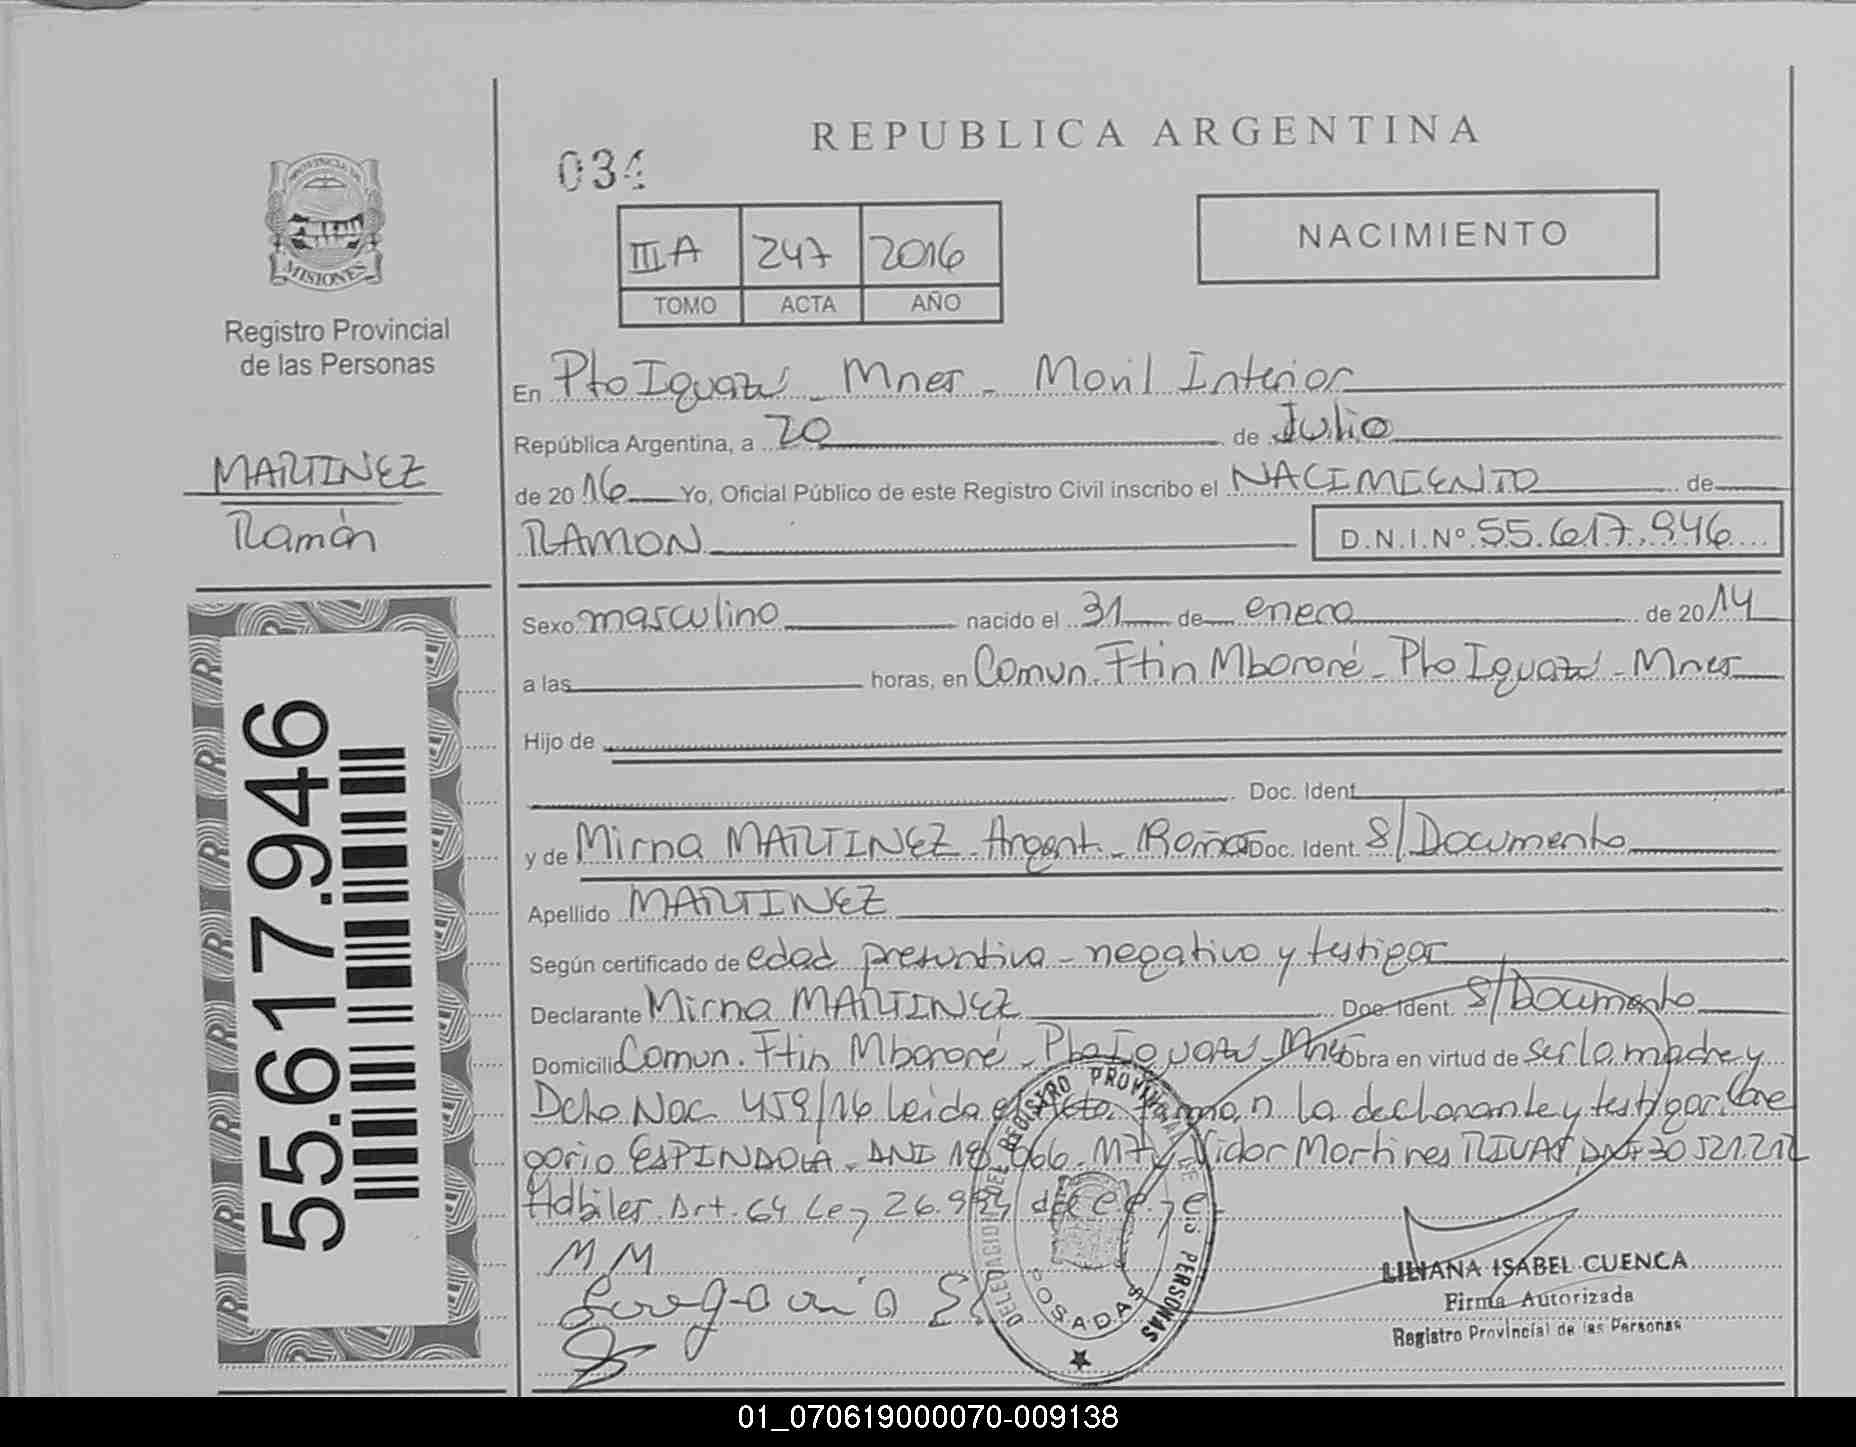 REPUBLICA ARGENTINA
034
PROVINCIA DE
MISIONES
Registro Provincial
de las Personas
NACIMIENTO
III A 247 2016
TOMO ACTA AÑO
MARTINEZ
Ramón
55.617.946
En Pto Iguazu - Mnes - Movil Interior
República Argentina, a 20 de Julio
de 2016 Yo, Oficial Público de este Registro Civil inscribo el NACIMIENTO de
RAMON D.N.I.Nº 55.617.946
Sexo masculino nacido el 31 de enero de 2014
a las horas, en Comun. Ftin Mbororé - Pto Iguazu - Mnes
Hijo de
Doc. Ident.
y de Mirna MARTINEZ - Argent. - Doc. Ident. S/Documento
Apellido MARTINEZ
Según certificado de edad presuntiva - negativo y testigos
Declarante Mirna MARTINEZ Doc. Ident. S/Documento
Domicilio Comun. Ftin Mbororé - Pto Iguazu - Mnes Obra en virtud de ser la madre y
Dcto Nac 459/16 Leida el Acta firman la declarante y testigos
gorio ESPINDOLA - DNI y RIVAS DNI 30 521.212
Habiles Art. 64 Ley 26.994 del
M M
DELEGACION DEL REGISTRO PROVINCIAL DE LAS PERSONAS
POSADAS
LILIANA ISABEL CUENCA
Firma Autorizada
Registro Provincial de las Personas
01_070619000070-009138